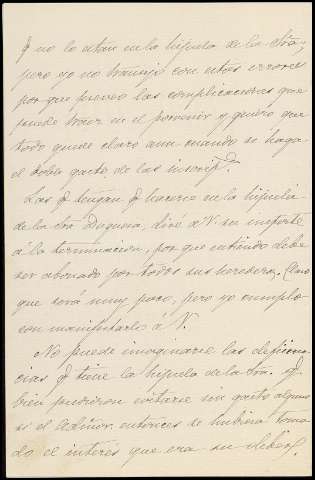 q no lo están en la hijuela de la Sra;
pero yo no transijo con estos errores
por que preveo las complicaciones que
puede traer en el porvenir y quiero que
todo quede claro aun cuando se haga
el doble gasto de las inscrip.s
Las q tengan q hacerse en la hijuela
de la Sra Duquesa, diré a V. su importe
a la terminacion, por que entiendo debe
ser abonado por todos sus herederos. Claro
que será muy poco, pero yo cumplo
con manifestarlo á V.
No puede imaginarse las deficien-
cias q tiene la hijuela de la Sra. q
bien pudieron evitarse sin gasto alguno
si el Admor. entonces se hubiera toma-
do el interés que era su deber.